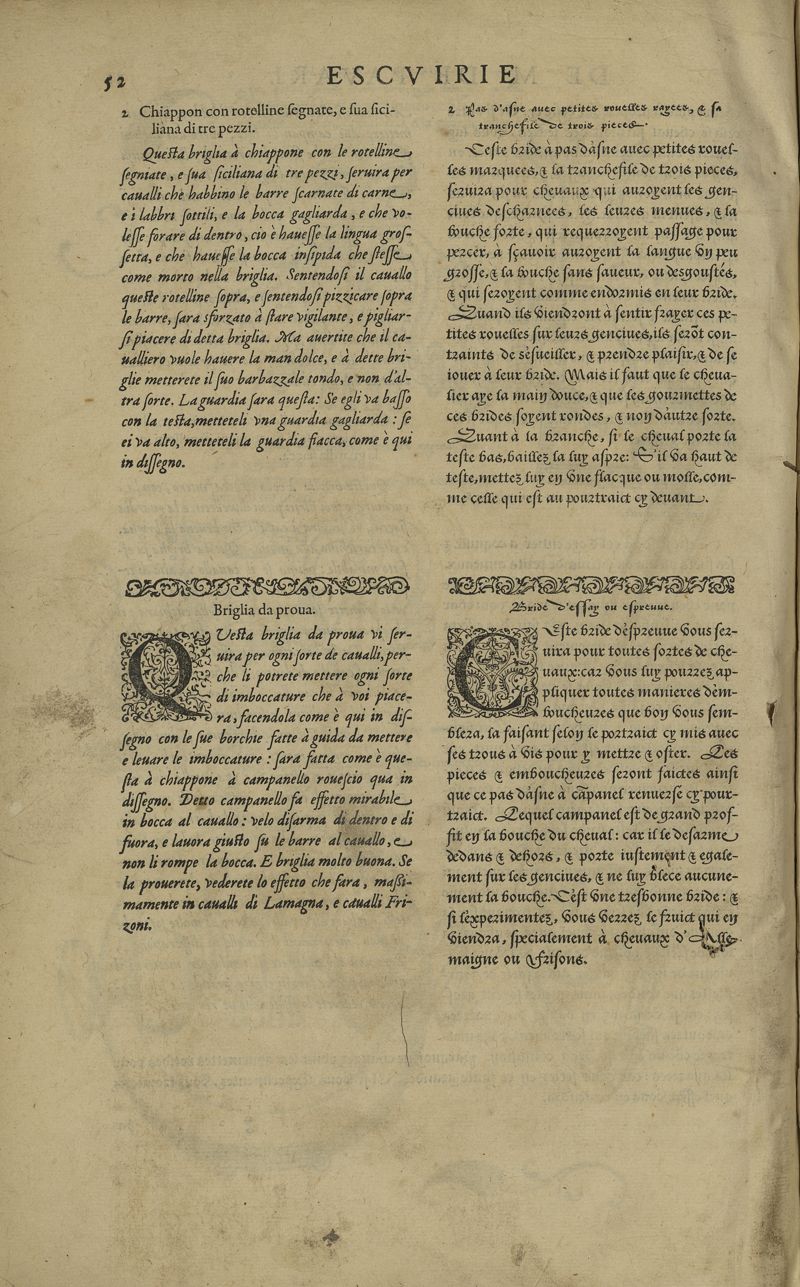 52
ESCVIRIE
2 Chiappon con rotelline segnate, e sua sici-
liana di tre pezzi.
Questa briglia à chiappone con le rotelline
segniate, e sua siciliana di tre pezzi, seruira per
caualli che habbino le barre scarnate di carne,
e i labbri sottili, e la bocca gagliarda, e che vo-
lesse forare di dentro, cio è hauesse la lingua gros-
setta, e che hauesse la bocca insipida che stesse
come morto nella briglia. Sentendosi il cauallo
queste rotelline sopra, e sentendosi pizzicare sopra
le barre, sara sforzato à stare vigilante, e pigliar-
si piacere di detta briglia. Ma auertite che il ca-
ualliero vuole hauere la man dolce, e à dette bri-
glie metterete il suo barbazzale tondo, e non d'al-
tra sorte. La guardia sara questa: Se egli va basso
con la testa, metteteli vna guardia gagliarda: se
ei va alto, metteteli la guardia fiacca, come è qui
in dissegno.
Briglia da proua.
QVesta briglia da proua vi ser-
uira per ogni sorte de caualli, per-
che li potrete mettere ogni sorte
di imboccature che à voi piace-
ra, facendola come è qui in dis-
segno con le sue borchie fatte à guida da mettere
e leuare le imboccature: sara fatta come è que-
sta à chiappone à campanello rouescio qua in
dissegno. Detto campanello fa effetto mirabile
in bocca al cauallo: velo disarma di dentro e di
fuora, e lauora giusto su le barre al cauallo, e
non li rompe la bocca. E briglia molto buona. Se
la prouerete, vederete lo effetto che fara, massi-
mamente in caualli di Lamagna, e caualli Fri-
zoni.
2 Pas d'asne auec petites rouelles rayees, & sa
tranchefile de trois pieces.
Ceste bride à pas d'àsne auec petites rouel-
les marquees, & la tranchefile de trois pieces,
seruira pour cheuaux qui auroyent les gen-
ciues descharnees, les leures menues, & la
bouche forte, qui requerroyent passage pour
percer, à sçauoir auroyent la langue vn peu
grosse, & la bouche sans saueur, ou desgoustés,
& qui seroyent comme endormis en leur bride.
Quand ils viendront à sentir frayer ces pe-
tites rouelles sur leurs genciues, ils serõt con-
traints de s'esueiller, & prendre plaisir, & de se
iouer à leur bride. Mais il faut que le cheua-
lier aye la main douce, & que les gourmettes de
ces brides soyent rondes, & non d'autre sorte.
Quant à la branche, si le cheual porte la
teste bas, baillez la luy aspre: S'il va haut de
teste, mettez luy en vne flacque ou molle, com-
me celle qui est au pourtraict cy deuant.
Bride d'essay ou espreuue.
CEste bride d'espreuue vous ser-
uira pour toutes sortes de che-
uaux: car vous luy pourrez ap-
pliquer toutes manieres d'em-
boucheures que bon vous sem-
blera, la faisant selon le portraict cy mis auec
ses trous à vis pour y mettre & oster. Les
pieces & emboucheures seront faictes ainsi
que ce pas d'asne à cãpanel renuersé cy pour-
traict. Lequel campanel est de grand prof-
fit en la bouche du cheual: car il le desarme
dedans & dehors, & porte iustement & egale-
ment sur les genciues, & ne luy blece aucune-
ment la bouche. C'est vne tresbonne bride: &
si l'experimentez, vous verrez le fruict qui en
viendra, specialement à cheuaux d'Alle-
maigne ou Frisons.